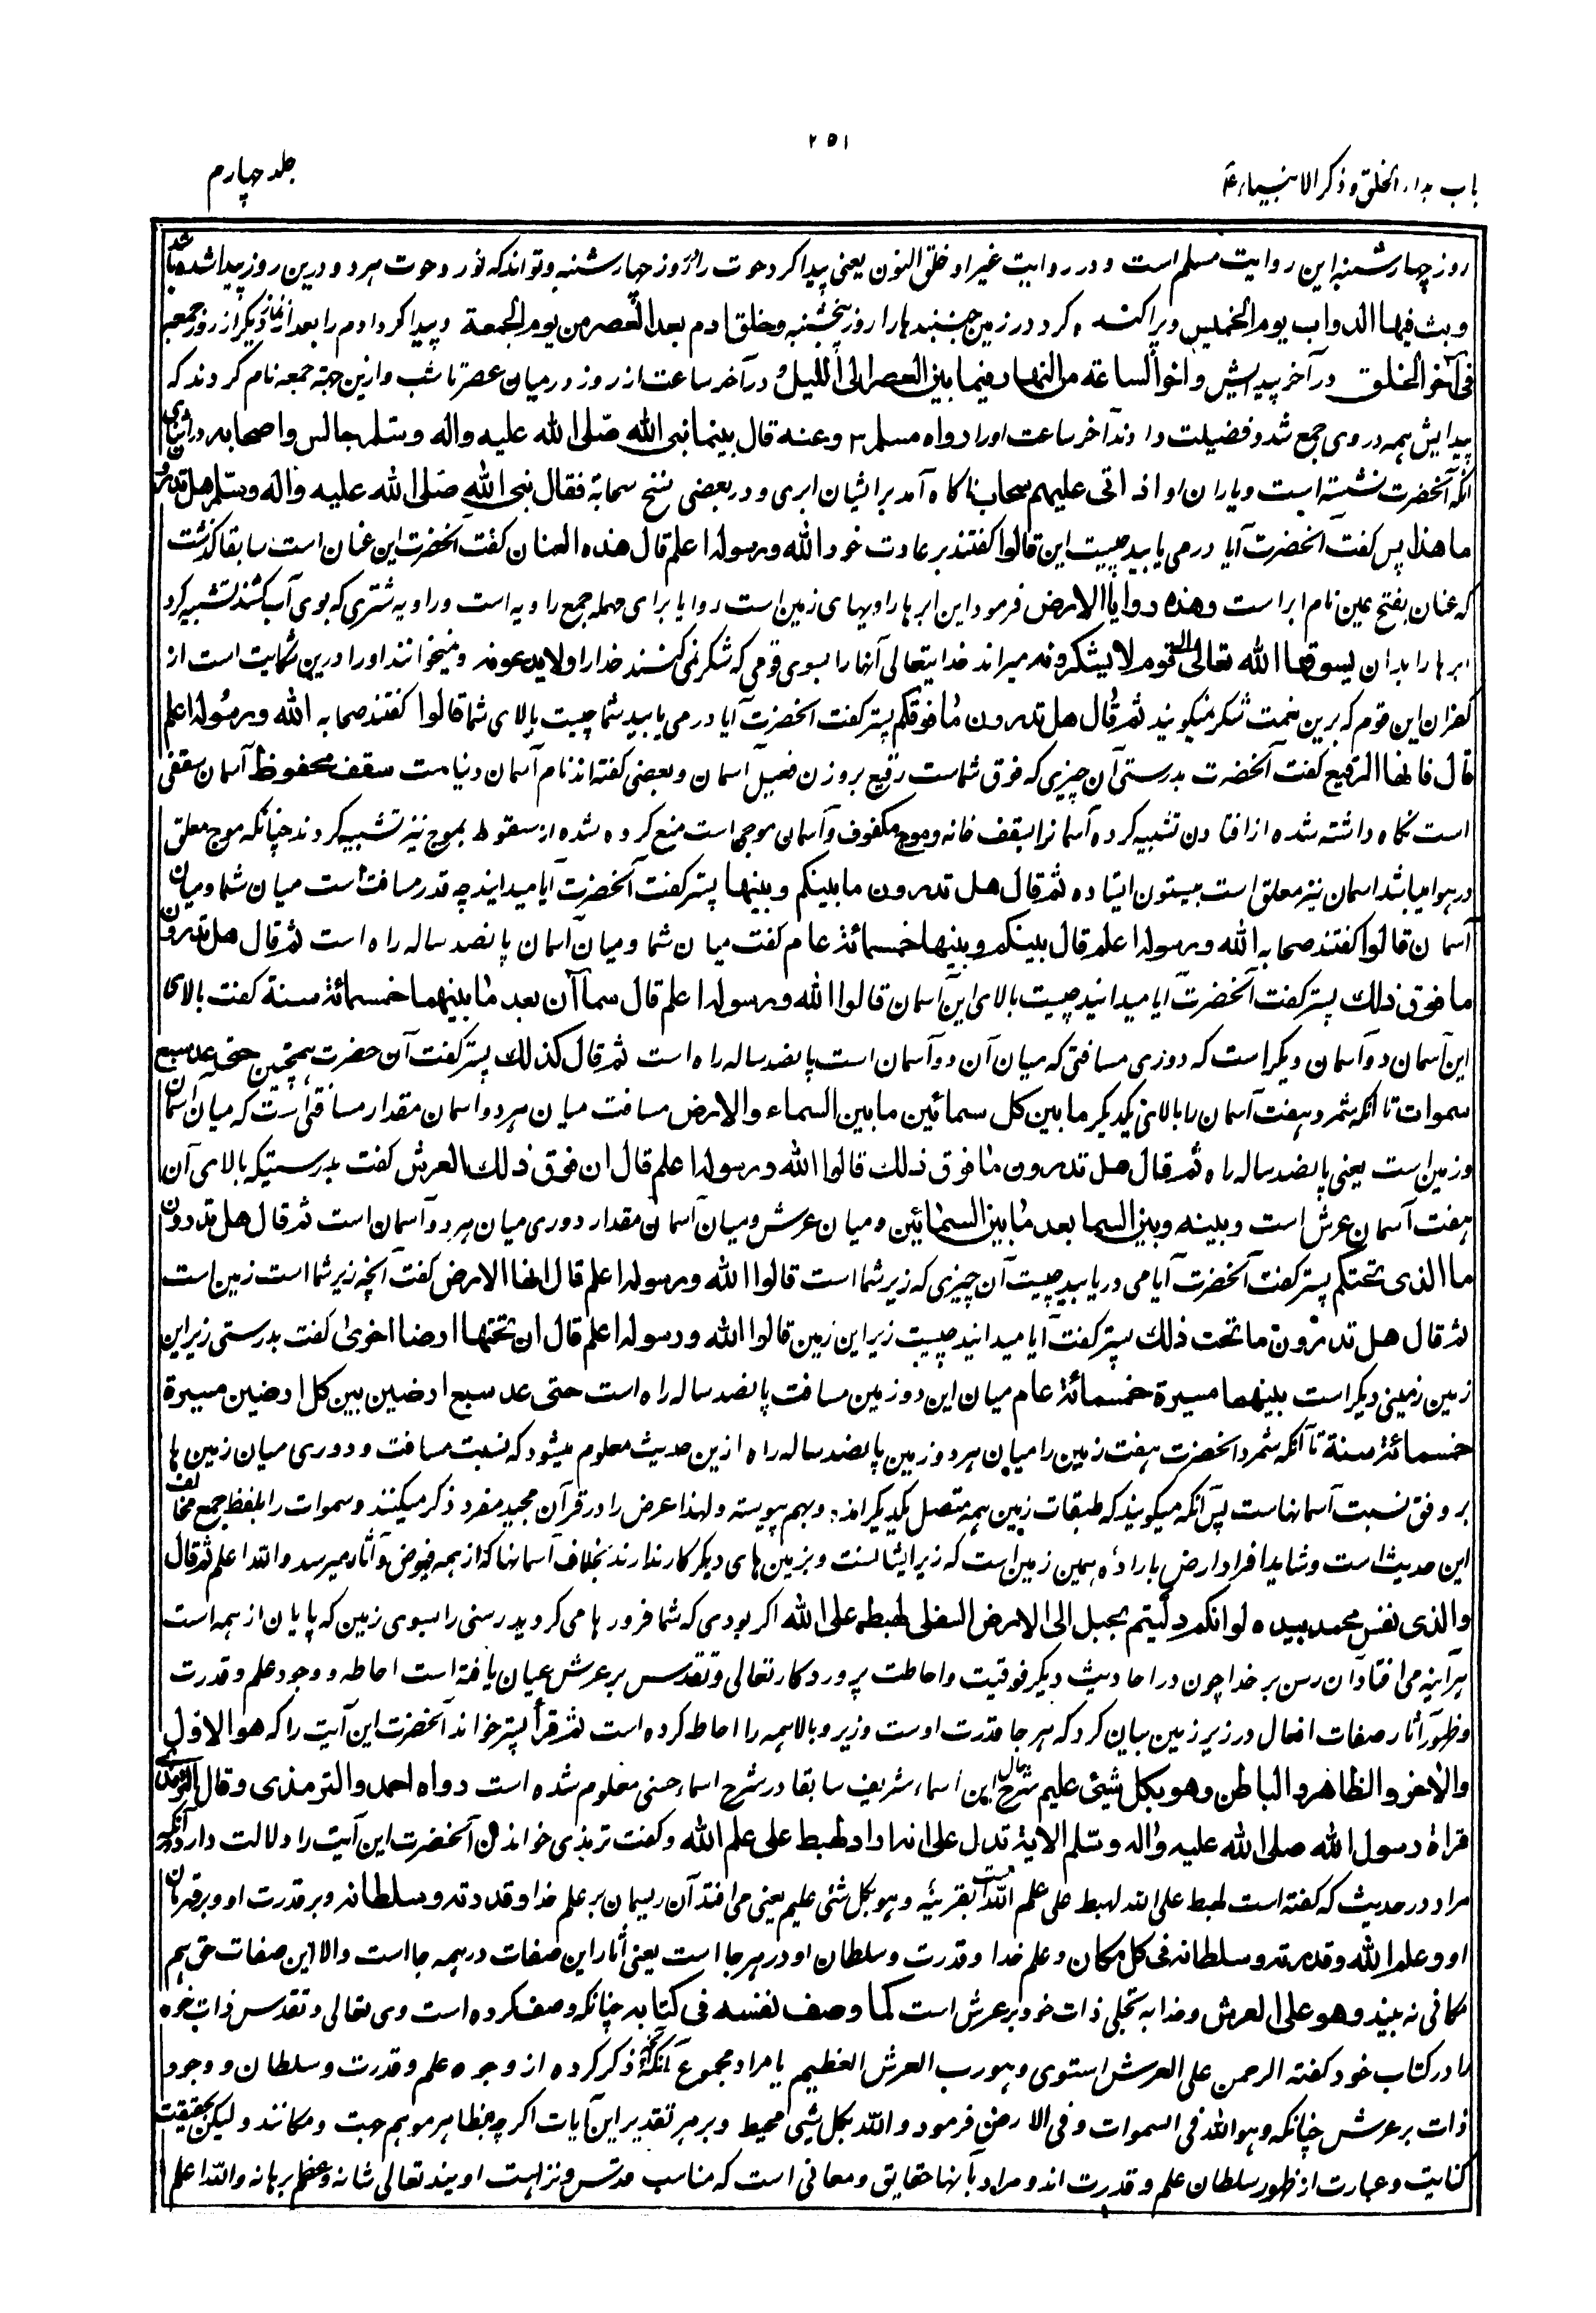 ۲۵۱
باب بدء الخلق و ذکر الانبیاء ع
جلد چهارم
روز چهارشنبه این روایت مسلم است و در روایت غیر او خلق النون یعنی پیدا کرد حوت را روز چهارشنبه و تواند که نور و حوت هر دو درین روز پیدا شده باشد
و بث فیها الدواب یوم الخمیس و پراکنده کرد در زمین جنبنده ها را روز پنجشنبه و خلق ادم بعد العصر من یوم الجمعة و پیدا کرد ادم را بعد از نماز دیگر از روز جمعه
فی آخر الخلق در آخر پیدایش و اخر الساعة من النهار فیما بین العصر الی اللیل در آخر ساعت از روز در میان عصر تا شب و ازین جهة جمعه نام کردند که
پیدایش همه در وی جمع شد و فضیلت دادند آخر ساعت اورا رواه مسلم ۳ و عنه قال بینما نبی الله صلی الله علیه واله وسلم جالس واصحابه در اثنای
آنکه آنحضرت نشسته است و یاران او اذ اتی علیهم سحاب ناگاه آمد بر ایشان ابری و در بعضی نسخ سحابة فقال نبی الله صلی الله علیه واله وسلم هل تدرون
ما هذا پس گفت آنحضرت آیا در می یابید چیست این قالوا گفتند بر عادت خود الله ورسوله اعلم قال هذه العنان گفت آنحضرت این عنان است سابقا گذشت
که عنان بفتح عین نام ابر است وهذه روایا الارض فرمود این ابر ها راویهای زمین است روایا برای مهمله جمع راویه است و راویه شتری که بوی آب کشند تشبیه کرد
ابر ها را بدان یسوقها الله تعالی الی قوم لا یشکرونه میراند خدایتعالی آنها را بسوی قومی که شکر نمی کنند خدا را ولا یدعونه و نمیخوانند اورا درین شکایت است از
کفران این قوم که برین نعمت شکر نمیگویند ثم قال هل تدرون ما فوقکم پستر گفت آنحضرت آیا در می یابید شما چیست بالای شما قالوا گفتند صحابه الله ورسوله اعلم
قال فانها الرقیع گفت آنحضرت بدرستی آن چیزی که فوق شماست رقیع بر وزن فعیل آسمان و بعضی گفته اند نام آسمان دنیاست سقف محفوظ آسمان سقفی
است نگاه داشته شده از افتادن تشبیه کرده آسمان را بسقف خانه و موج مکفوف و آسمان موجی است منع کرده شده از سقوط بموج نیز تشبیه کردند چنانکه موج معلق
در هوا میباشد اسمان نیز معلق است بیستون ایستاده ثم قال هل تدرون ما بینکم وبینها پستر گفت آنحضرت آیا میدانید چه قدر مسافت است میان شما و میان
آسمان قالوا گفتند صحابه الله ورسوله اعلم قال بینکم وبینها خمسمائة عام گفت میان شما و میان آسمان پانصد ساله راه است ثم قال هل تدرون
ما فوق ذلک پستر گفت آنحضرت آیا میدانید چیست بالای این آسمان قالوا الله ورسوله اعلم قال سماآن بعد ما بینهما خمسمائة سنة گفت بالای
این آسمان دو آسمان دیگر است که دوری مسافتی که میان آن دو آسمان است پانصد ساله راه است ثم قال کذلک پستر گفت آن حضرت همچنین حتی عد سبع
سموات تا آنکه شمرد هفت آسمان را بالای یکدیگر ما بین کل سمائین ما بین السماء والارض مسافت میان هر دو اسمان مقدار مسافتی است که میان آسمان
و زمین است یعنی پانصد ساله راه ثم قال هل تدرون ما فوق ذلک قالوا الله ورسوله اعلم قال ان فوق ذلک العرش گفت بدرستیکه بالای آن
هفت آسمان عرش است وبینه وبین السما بعد ما بین السمائین و میان عرش و میان آسمان مقدار دوری میان هر دو آسمان است ثم قال هل تدرون
ما الذی تحتکم پستر گفت آنحضرت آیا می دریابید چیست آن چیزی که زیر شما است قالوا الله ورسوله اعلم قال انها الارض گفت آنچه زیر شما است زمین است
ثم قال هل تدرون ما تحت ذلک پستر گفت آیا میدانید چیست زیر این زمین قالوا الله ورسوله اعلم قال ان تحتها ارضا اخری گفت بدرستی زیر این
زمین زمینی دیگر است بینهما مسیرة خمسمائة عام میان این دو زمین مسافت پانصد ساله راه است حتی عد سبع ارضین بین کل ارضین مسیرة
خمسمائة سنة تا آنکه شمرد آنحضرت هفت زمین را میان هر دو زمین پانصد ساله راه ازین حدیث معلوم میشود که نسبت مسافت و دوری میان زمین ها
بر وفق نسبت آسمانهاست پس آنکه میگویند که طبقات زمین همه متصل یکدیگر اند و بهم پیوسته و لهذا عرض را در قرآن مجید مفرد ذکر میکنند و سموات را بلفظ جمع مخالف
این حدیث است و شاید افراد ارض باراده همین زمین است که زیر ایشانست و بزمین های دیگر کار ندارند بخلاف آسمانها که از همه فیوض و آثار میرسد والله اعلم ثم قال
والذی نفس محمد بیده لو انکم دلیتم بحبل الی الارض السفلی لهبط علی الله اگر بودی که شما فرو رها می کردید رسنی را بسوی زمین که پایان از همه است
هر آینه می افتاد آن رسن بر خدا چون در احادیث دیگر فوقیت و احاطت پروردگار تعالی و تقدس بر عرش عیان یافته است احاطه وجود علم و قدرت
و ظهور آثار صفات افعال در زیر زمین بیان کرد که هر جا قدرت اوست و زیر و بالا همه را احاطه کرده است ثم قرأ پستر خواند آنحضرت این آیت را که هو الاول
والاخر والظاهر والباطن وهو بکل شیئ علیم شرح این اسماء شریف سابقا در شرح اسماء حسنی معلوم شده است رواه احمد والترمذی وقال الترمذی
قراة رسول الله صلی الله علیه واله وسلم الایة تدل علی انه اراد لهبط علی علم الله و گفت ترمذی خواندن آنحضرت این آیت را دلالت دارد بر آنکه
مراد در حدیث که گفته است لهبط علی الله لهبط علی علم الله است بقرینهٔ وهو بکل شئی علیم یعنی می افتد آن ریسمان بر علم خدا وقدرته وسلطانه و بر قدرت او و بر قهرمان
او وعلم الله وقدرته وسلطانه فی کل مکان و علم خدا و قدرت و سلطان او در هر جا است یعنی آثار این صفات در همه جا است والا این صفات حق هم
مکانی نه بیند وهو علی العرش و خدا به تجلی ذات خود بر عرش است کما وصف نفسه فی کتابه چنانکه وصف کرده است وی تعالی و تقدس ذات خود
را در کتاب خود گفته الرحمن علی العرش استوی و هو رب العرش العظیم یا مراد مجموع آنکه ذکر کرده از وجوه علم و قدرت و سلطان و وجود
ذات بر عرش چنانکه وهو الله فی السموات وفی الارض فرمود و الله بکل شئی محیط و بر هر تقدیر این آیات اگر چه بظاهر موهم جهت و مکانند و لیکن بحقیقت
کنایت و عبارت از ظهور سلطان علم و قدرت اند و مراد بآنها حقایق و معانی است که مناسب قدس و نزاهت اویند تعالی شانه و عظم برهانه والله اعلم